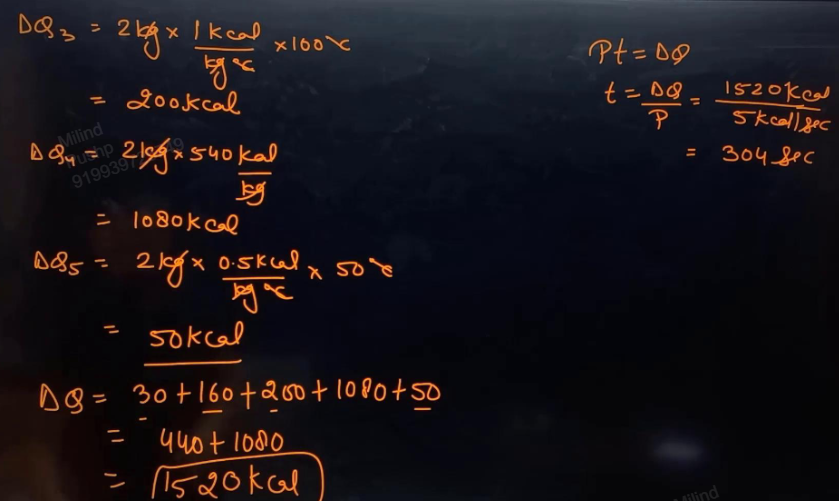 ΔQ₃ = 2kg × 1kcal/kg°c × 100°c
= 200kcal
ΔQ₄ = 2kg × 540 kcal/kg
= 1080kcal
ΔQ₅ = 2kg × 0.5kcal/kg°c × 50°c
= 50kcal
ΔQ = 30+160+200+1080+50
= 440+1080
= 1520kcal
Pt = ΔQ
t = ΔQ/P = 1520kcal/5kcal/sec
= 304 sec
Milind
Milind